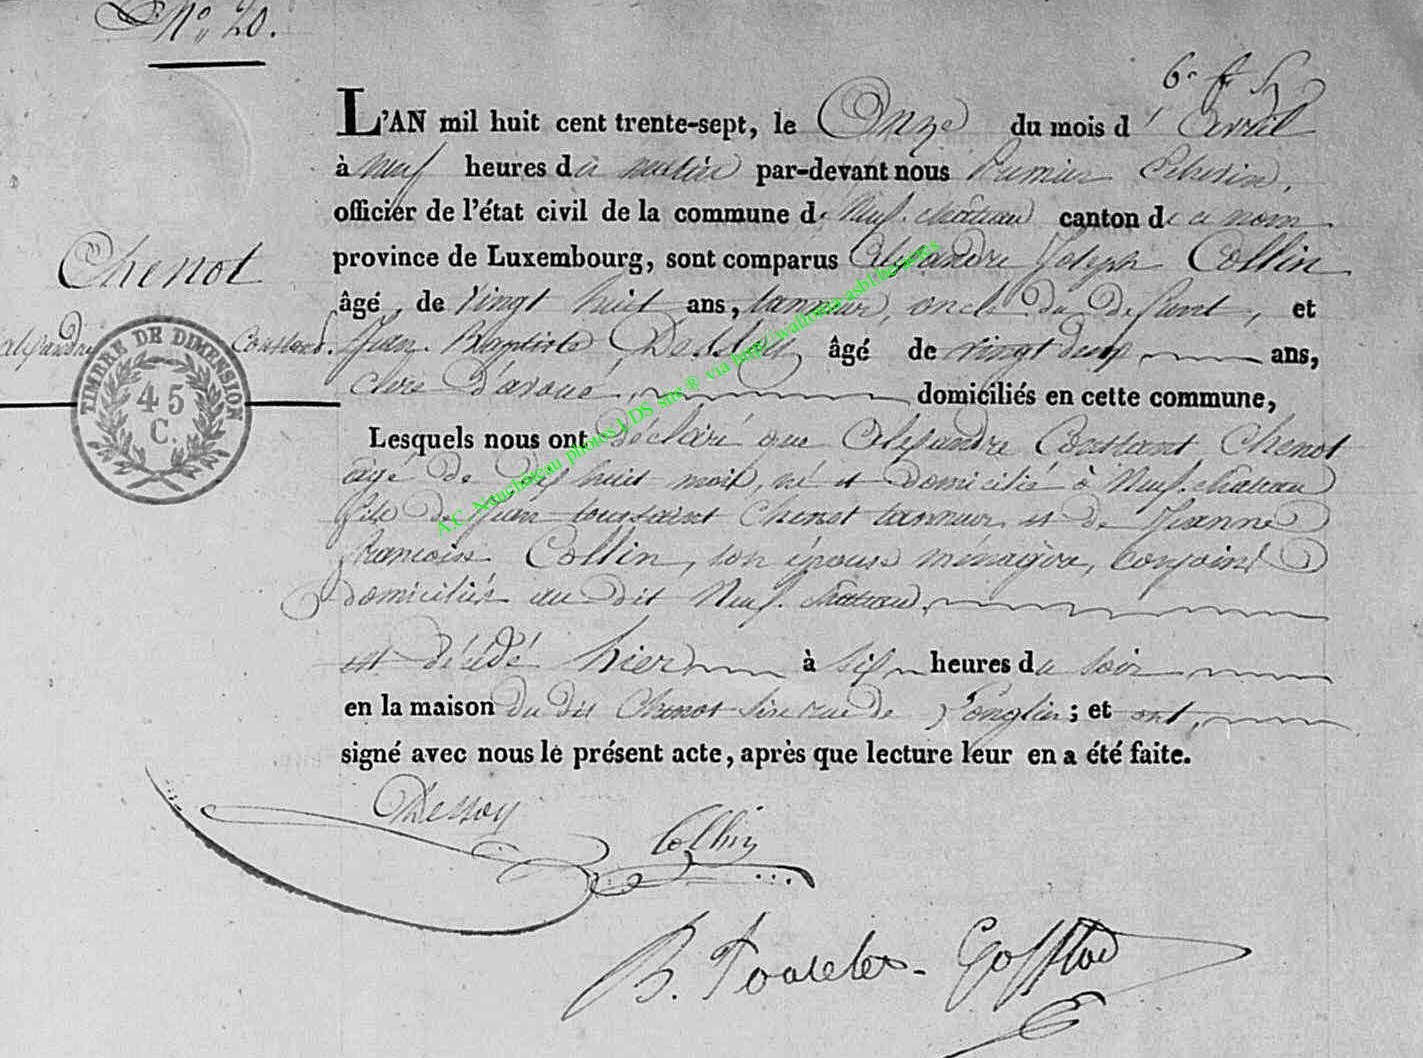 N° 20.
L'AN mil huit cent trente-sept, le Onze du mois d'avril
à Neuf heures du matin par-devant nous
officier de l'état civil de la commune de Neufchâteau canton de ce nom
Chenot
province de Luxembourg, sont comparus Alexandre Joseph Collin
âgé de vingt huit ans, tanneur, oncle du défunt et
alexandre Constant.
Jean Baptiste Dessoy âgé de vingt deux ans,
TIMBRE DE DIMENSION
45
C.
clerc d'avoué, domiciliés en cette commune,
Lesquels nous ont déclaré que Alexandre Constant Chenot
agé de huit mois, né et domicilié à Neufchateau
fils de Jean toussaint Chenot tanneur et de Jeanne
françoise Collin, son épouse ménagère, conjoints
domiciliés au dit Neufchateau,
est décédé hier à six heures du soir
en la maison du dit Chenot sise rue de Longlier; et ont,
signé avec nous le présent acte, après que lecture leur en a été faite.
A.C. Neufchâteau photos LDS snc® via http://wallonia-asbl.be/actes
Dessoy
Collin